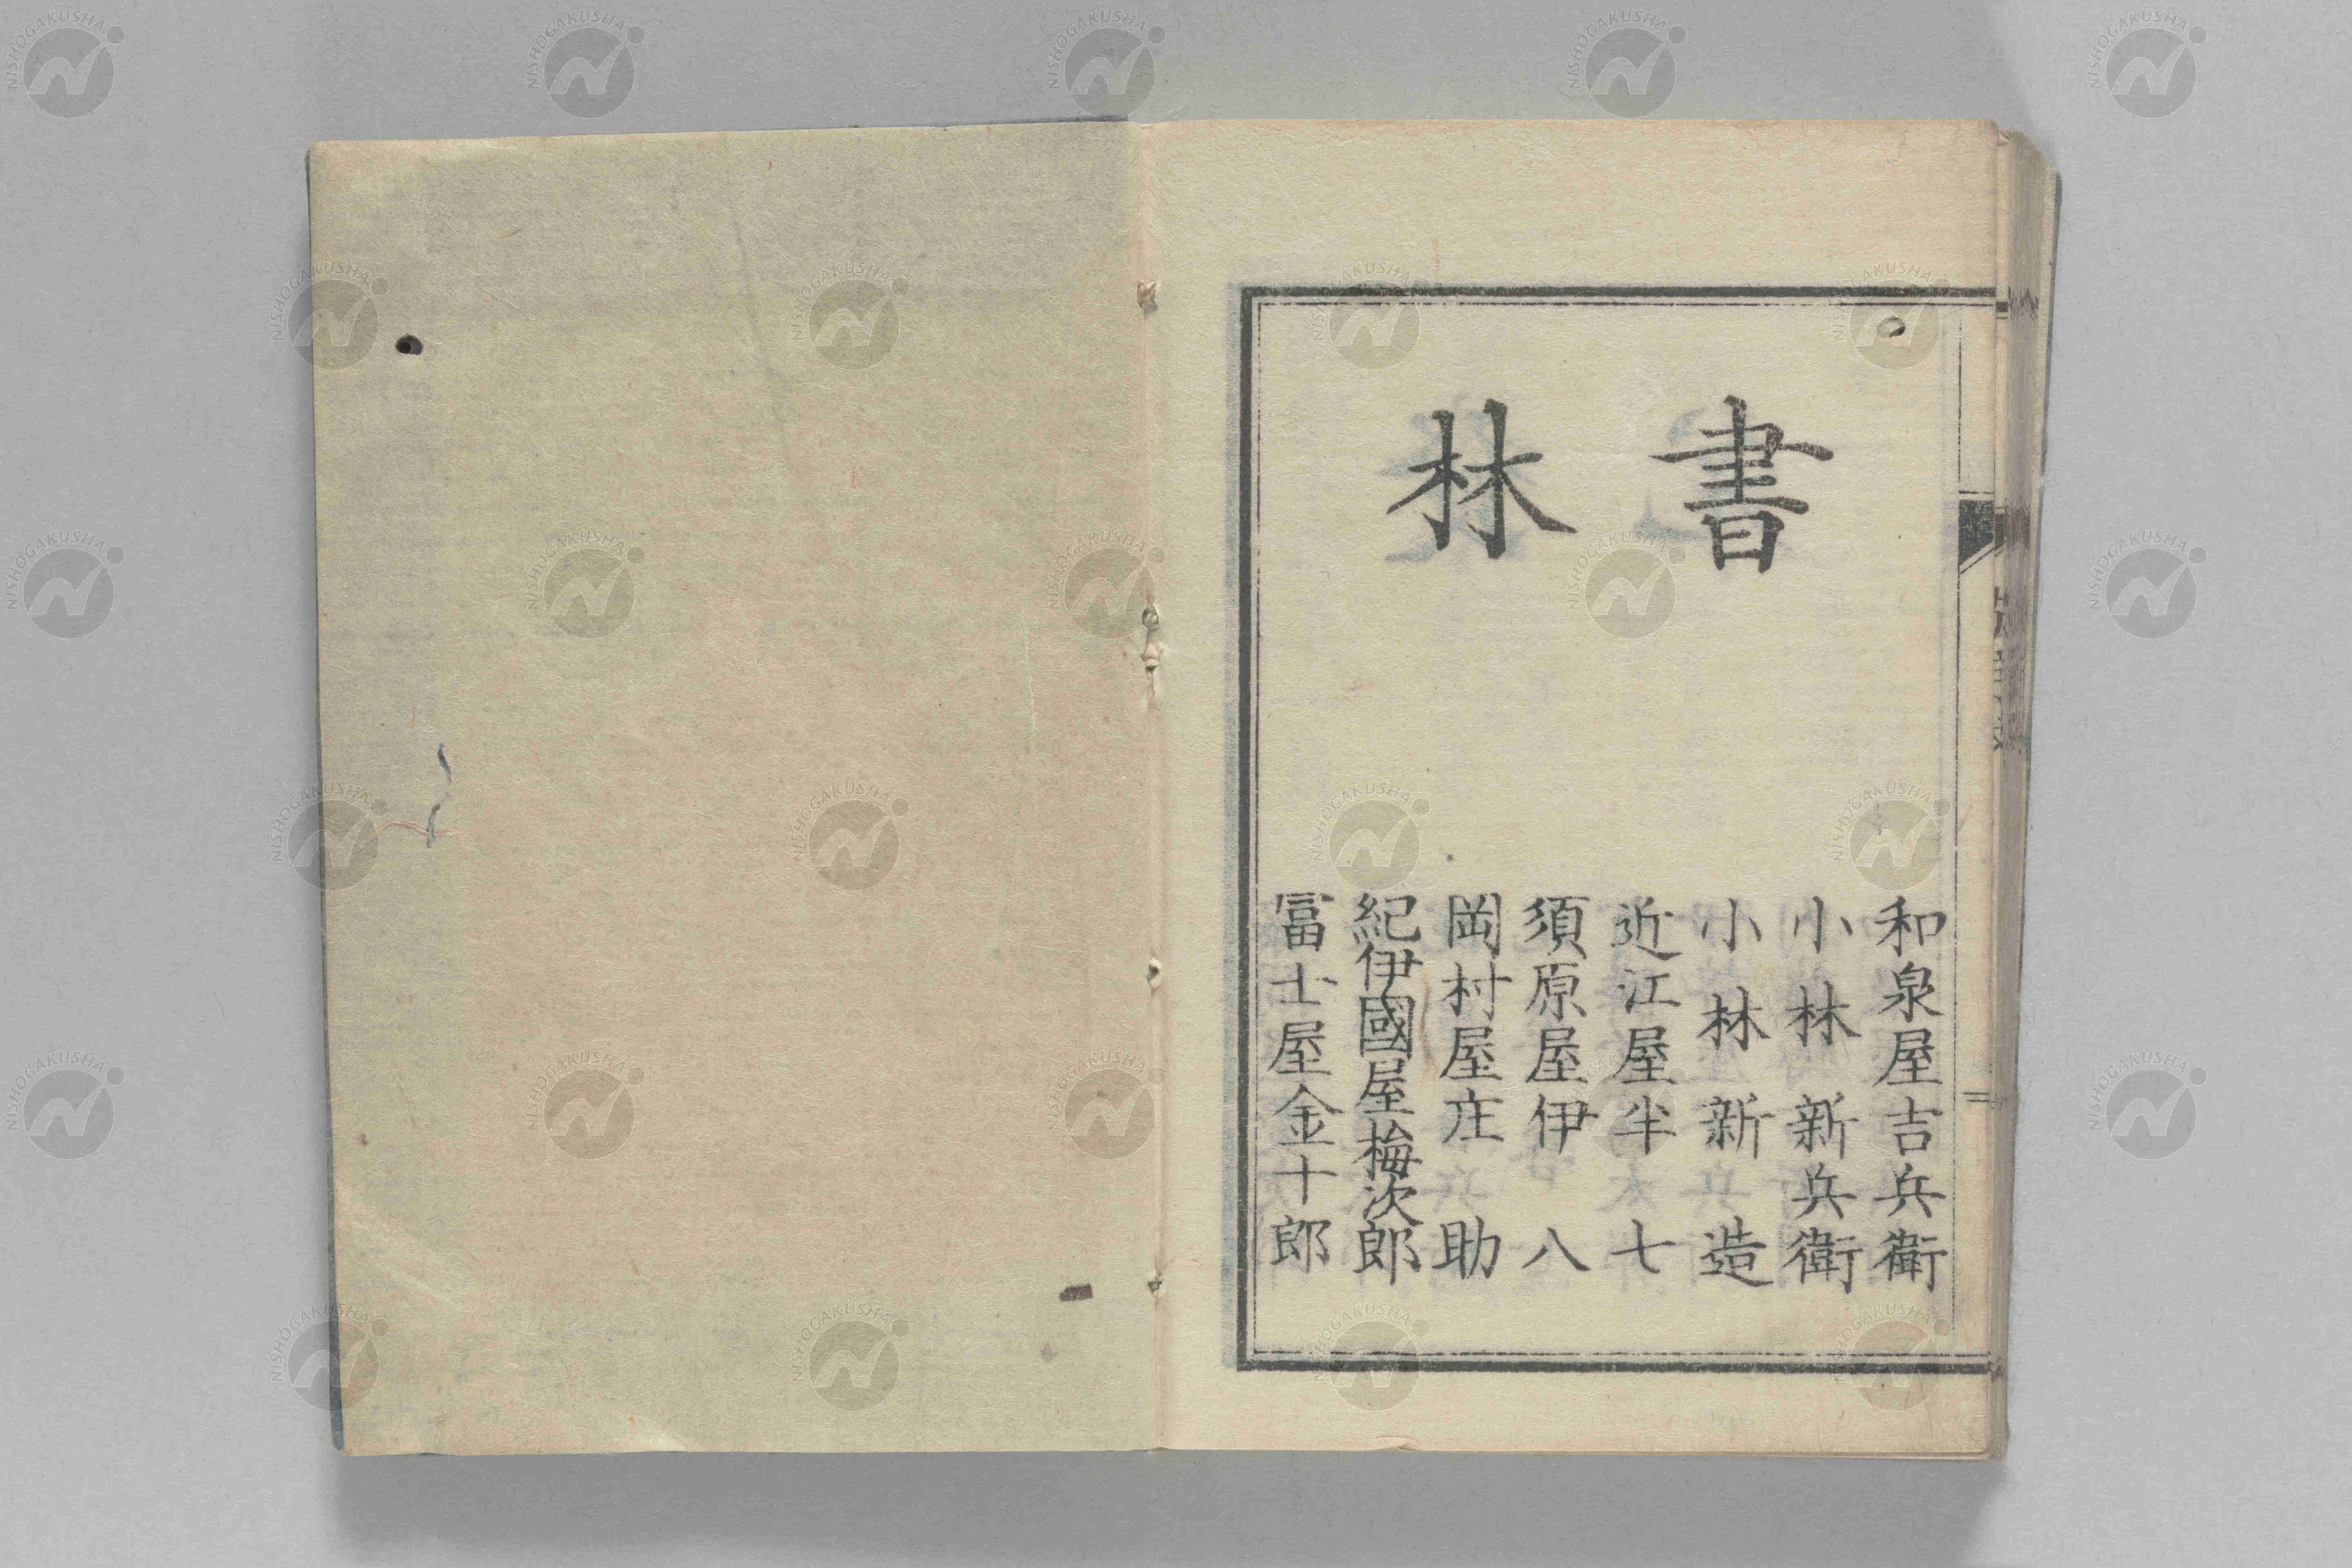 書林
和泉屋吉兵衛
小林新兵衛
小林新造
近江屋半七
須原屋伊八
岡村屋庄助
紀伊國屋梅次郎
冨士屋金十郎
NISHOGAKUSHA